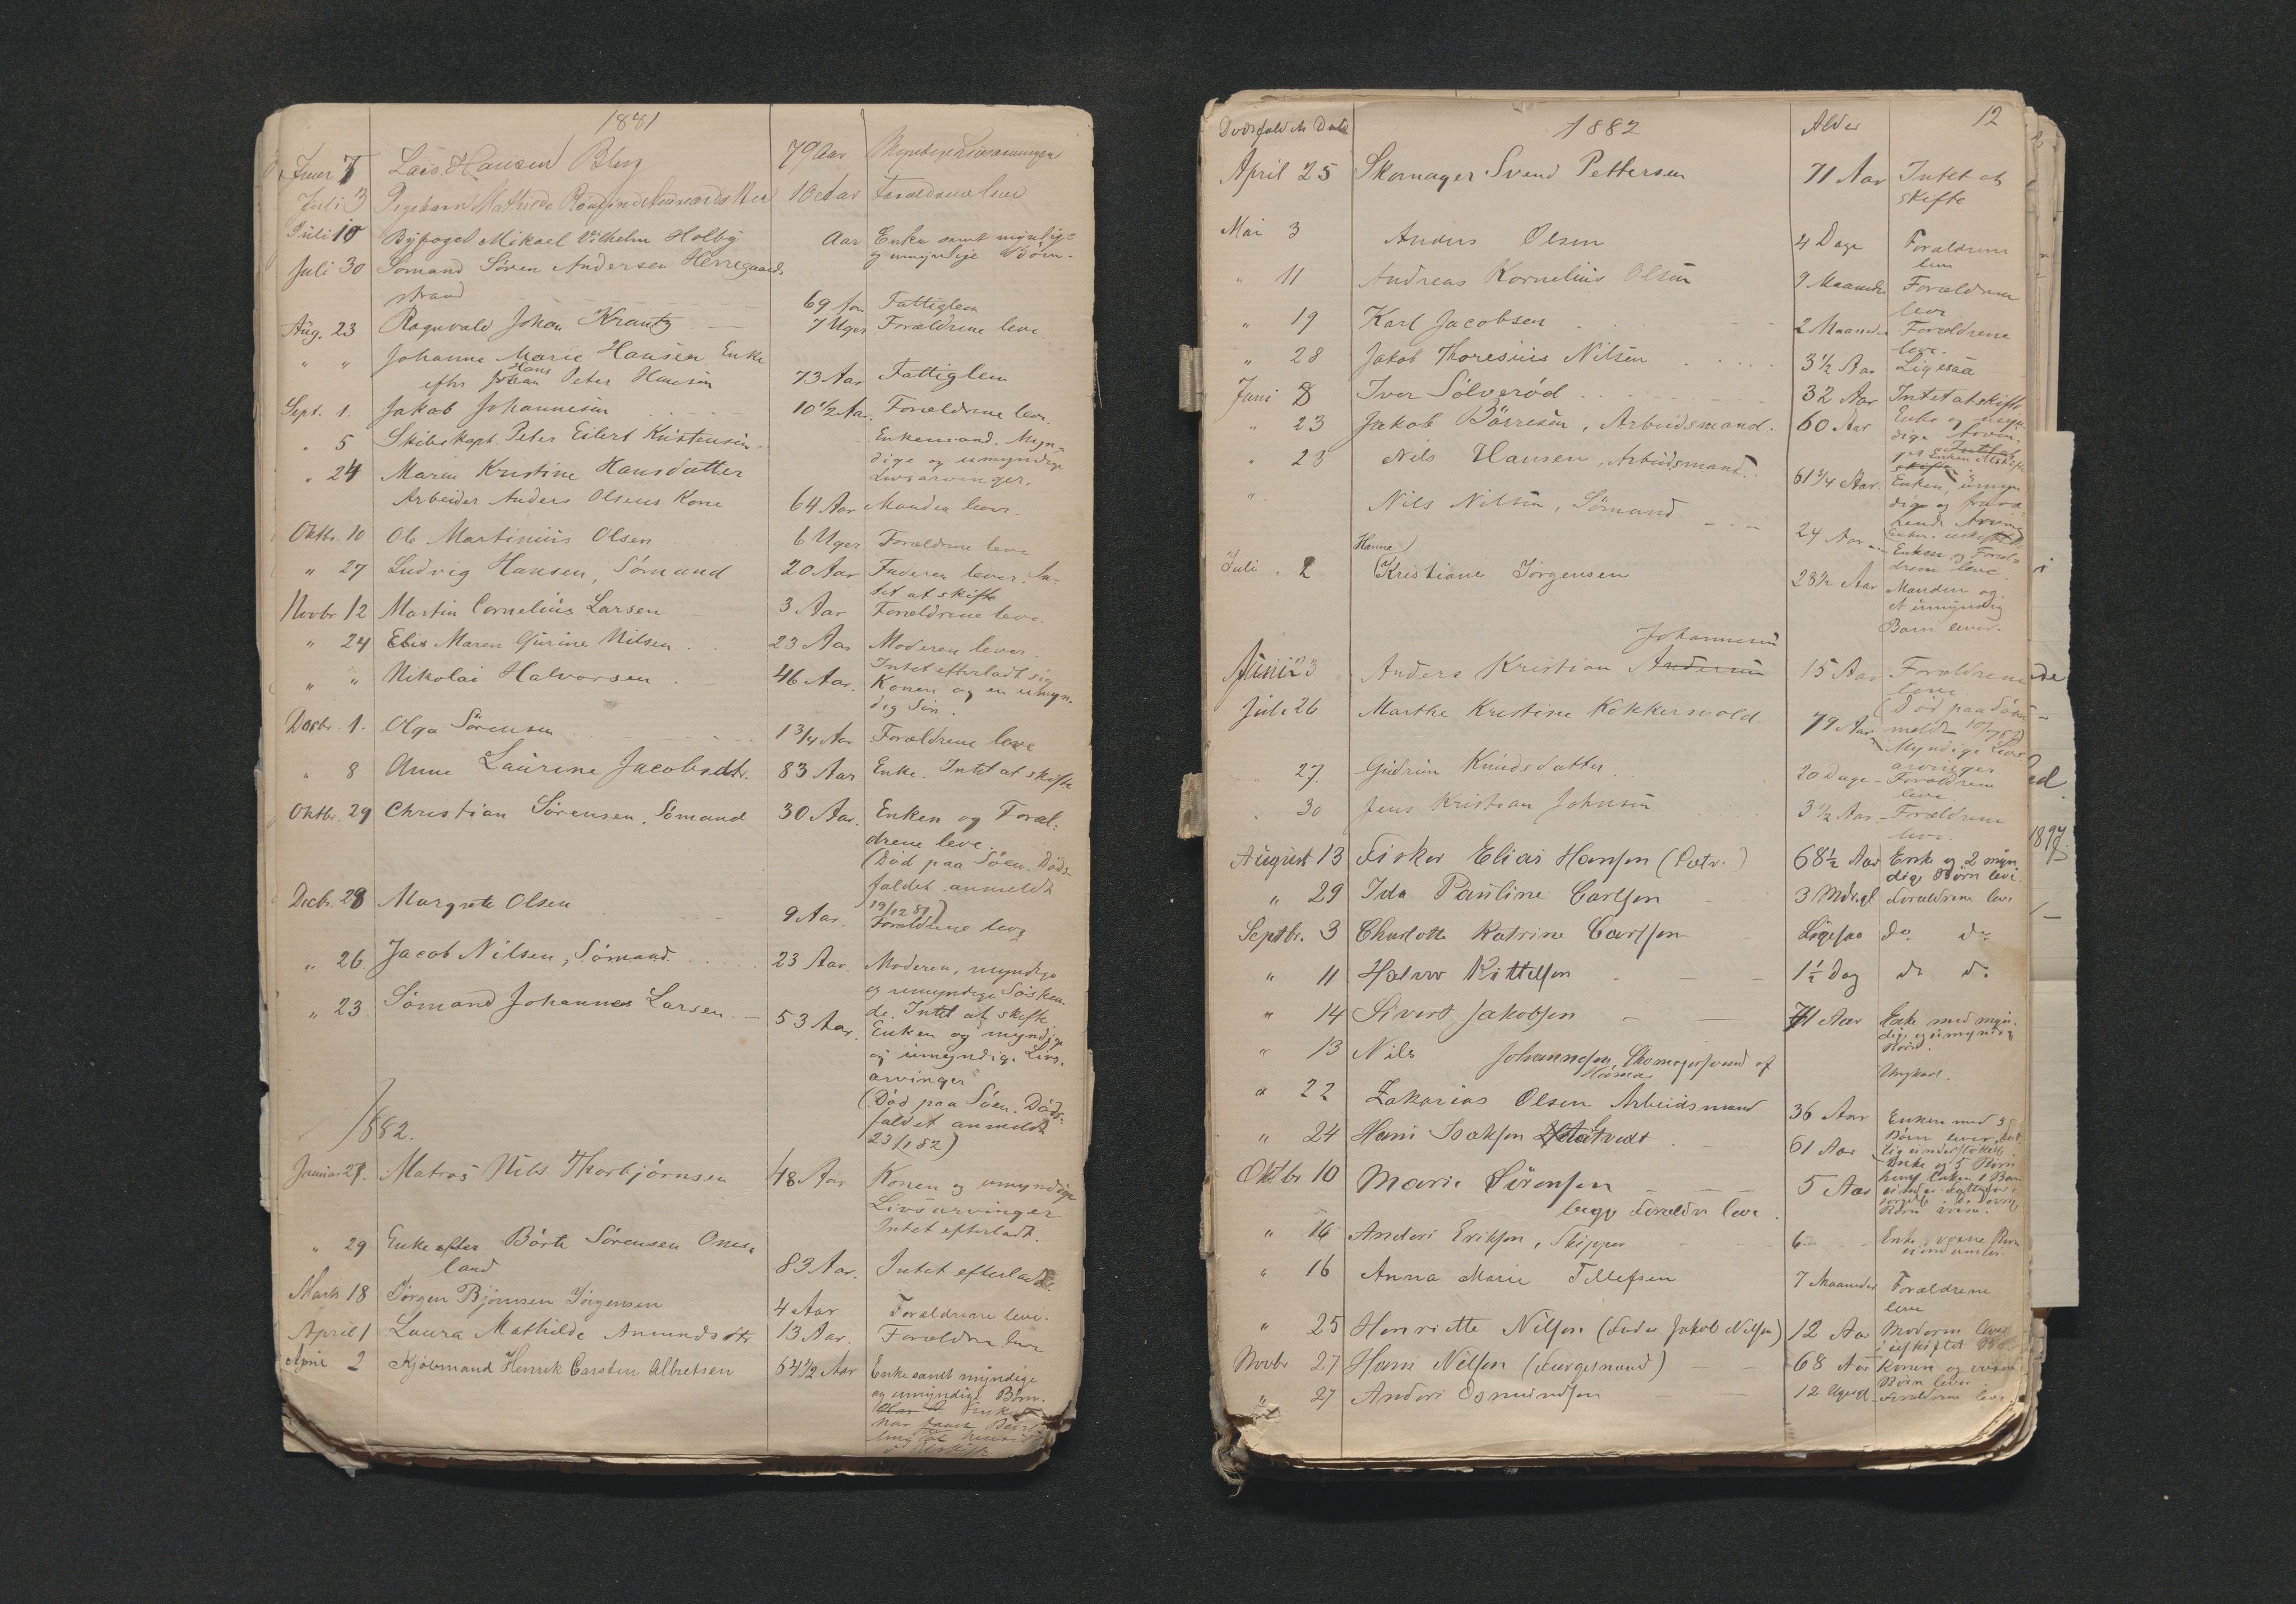 1881
Juni 7 Lars Hansen Berg 79 Aar Myndige Livsarvinger
Juli 3 Pigebarn Mathilde 10 Aar Forældrene leve
Juli 10 Byfoged Mikael Vilhelm Holby Aar Enke samt myndige
og umyndige Börn.
Juli 30 Sömand Sören Andersen Herregaards
strand 69 Aar Fattiglem
Aug. 23 Ragnvald Johan Krantz 7 Uger Forældrene leve
" " Johanne Marie Hansen Enke
efter Hans Peter Hansen 73 Aar Fattiglem
Sept. 1. Jakob Johannesen 10 1/2 Aar. Forældrene leve.
" 5 Skibskapt. Peter Eilert Kristensen Enkemand. Myn-
dige og umyndige
Livsarvinger.
" 24 Maren Kristine Hansdatter
Arbeider Anders Olsens Kone 64 Aar Manden lever.
Oktbr. 10 Ole Martinius Olsen 6 Uger Forældrene leve
" 27 Ludvig Hansen, Sömand 20 Aar Faderen lever. In-
tet at skifte
Novbr 12 Martin Cornelius Larsen 3 Aar Forældrene leve.
" 24 Elis Maren Gurine Nilsen 23 Aar Moderen lever.
Intet efterladt sig
" " Nikolai Halvorsen 46 Aar. Konen og en umyn-
dig Sön.
Decbr. 1. Olga Sörensen 1 3/4 Aar Forældrene leve
" 8 Anne Laurine Jacobsdtr. 83 Aar Enke. Intet at skifte
Oktbr. 29 Christian Sörensen, Sömand 30 Aar. Enken og Foræl-
drene leve.
(Död paa Söen. Döds-
faldet anmeldt
19/12 81)
Decbr. 28 Margrete Olsen 9 Aar. Forældrene leve
" 26 Jacob Nilsen, Sömand 23 Aar. Moderen, myndige
og umyndige Sösken-
de. Intet at skifte
" 23 Sömand Johannes Larsen 53 Aar. Enken og myndige
og umyndige Livs-
arvinger
(Död paa Söen. Döds-
faldet anmeldt
23/1 82)
1882.
Januar 27. Matros Nils Thorbjörnsen 48 Aar Konen og umyndige
Livsarvinger
Intet efterladt.
" 29 Enke efter Börte Sörensen Ones-
land 83 Aar. Intet efterladt.
Marts 18 Jörgen Björnsen Jörgensen 4 Aar Forældrene leve.
April 1 Laura Mathilde Amundsdtr 13 Aar. Forældrene leve
April 2 Kjöbmand Henrik Carsten Albretsen 64 1/2 Aar Enke samt myndige
og umyndige Börn.
Dödsfaldets Datum 1882 Alder 12
April 25 Skomager Svend Pettersen 71 Aar Intet at
skifte
Mai 3 Anders Olsen 4 Dage Forældrene
leve
" 11 Andreas Kornelius Olsen 9 Maaneder Forældrene
leve
" 19 Karl Jacobsen 2 Maaneder Forældrene
leve.
" 28 Jakob Thoresius Nilsen 3 1/2 Aar Ligesaa
Juni 8 Iver Sölveröd 32 Aar Intet at skifte
" 23 Jakob Börresen, Arbeidsmand. 60 Aar Enke og myn-
dige Arvin-
ger
" 23 Nils Hansen, Arbeidsmand. 61 3/4 Aar. Enken, umyn
dige og fravæ-
rende Arvinger
" Nils Nilsen, Sömand 24 Aar Enken og Foræl-
drene leve.
Juli 2 (Hanna) Kristiane Jörgensen 28 1/2 Aar Manden og
et umyndig
Barn lever.
Johannesen
Juni 23 Anders Kristian Andersen 15 Aar Forældrene
leve
Juli 26 Marthe Kristine Kokkersvold 79 Aar (Död paa
Myndige Livs
arvinger
" 27. Gudrun Knudsdatter 20 Dage Forældrene
leve
" 30 Jens Kristian Johnsen 3 1/2 Aar Forældrene
leve.
August 13 Fisker Elias Hansen 68 1/2 Aar Enke og 2 myn
dige Börn leve.
" 29 Ida Pauline Carlsen 3 Mdr. gl Forældrene leve
Septbr. 3 Charlotte Katrine Carlsen Ligesaa do do
" 11 Halvor Kittelsen 1 1/2 Dag do do
" 14 Sivert Jakobsen 71 Aar Enke med myn-
dige og umyndige
Börn.
" 13 Nils Johannesen, Skomagersvend af
Ungkarl.
" 22 Zakarias Olsen Arbeidsmand 36 Aar Enken med 5
Börn lever
" 24 Hans Isaksen 61 Aar
Enke og 5 Börn
Oktbr 10 Marie Sörensen 5 Aar
begge Forældre leve.
" 16 Anders Eriksen, Skipper 6 Enke, voxne Börn
" 16 Anna Marie Tellefsen 7 Maaneder Forældrene
leve
" 25 Henriette Nilsen (Fader Jakob Nilsen) 12 Aar Moderen lever
i uskiftet Bo
Novbr 27 Hans Nilsen (Færgemand) 68 Aar Konen og voxne
Börn lever
" 27 Anders Osmundsen 12 Uger gl Forældrene leve.